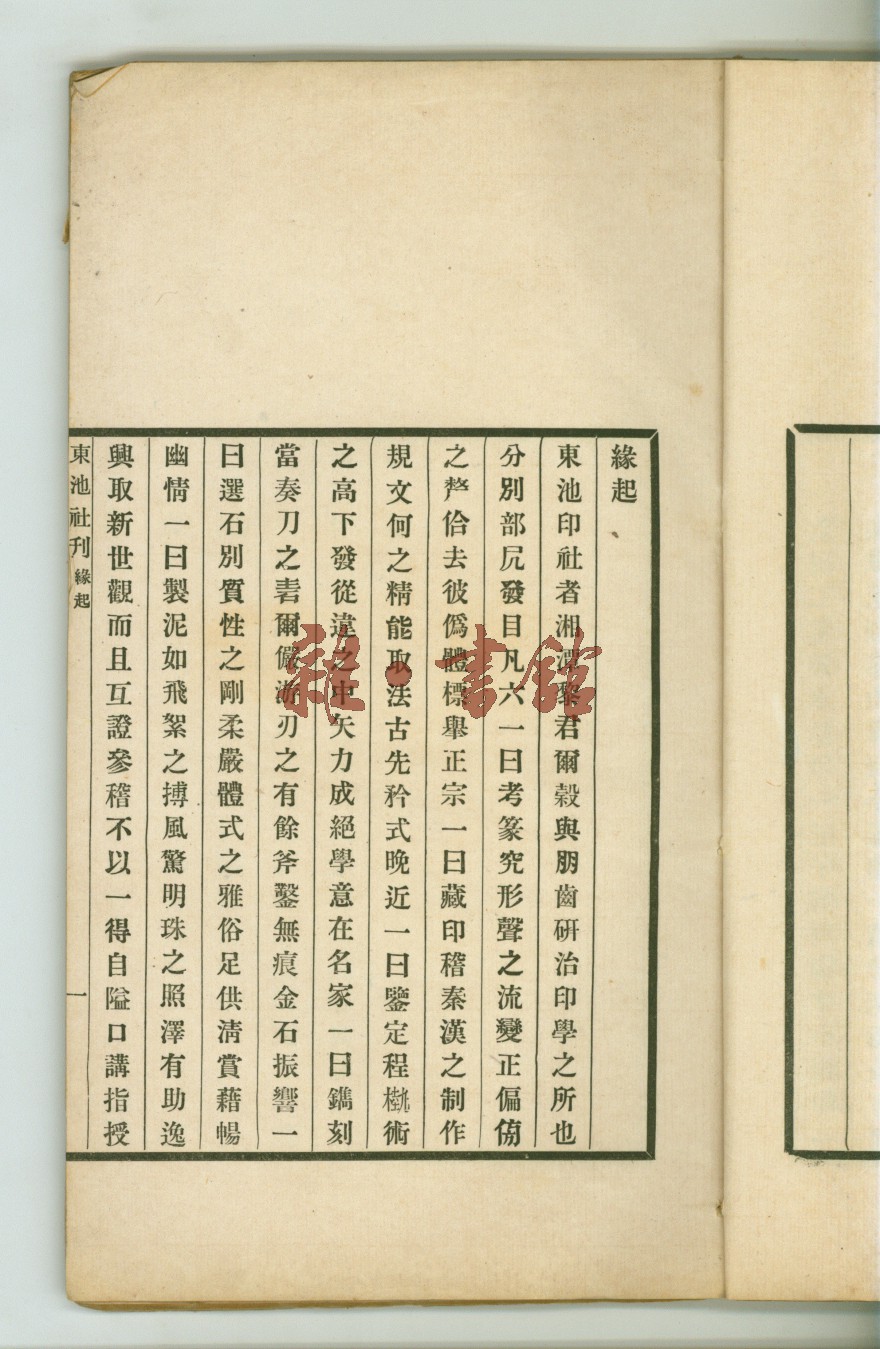 緣起
東池印社者湘潭黎君爾穀與朋齒研治印學之所也
分別部凥發目凡六一曰考篆究形聲之流變正偏傍
之佮去彼僞體標舉正宗一曰藏印稽秦漢之制作
規文何之精能取法古先矜式晚近一曰鑒定程術
之高下發從違之中矢力成絕學意在名家一曰鐫刻
當奏刀之砉爾儼游刃之有餘斧鑿無痕金石振響一
曰選石別質性之剛柔嚴體式之雅俗足供淸賞藉暢
幽情一曰製泥如飛絮之搏風驚明珠之照澤有助逸
興取新世觀而且互證參稽不以一得自隘口講指授
東池社刋 緣起
一
雜·書館